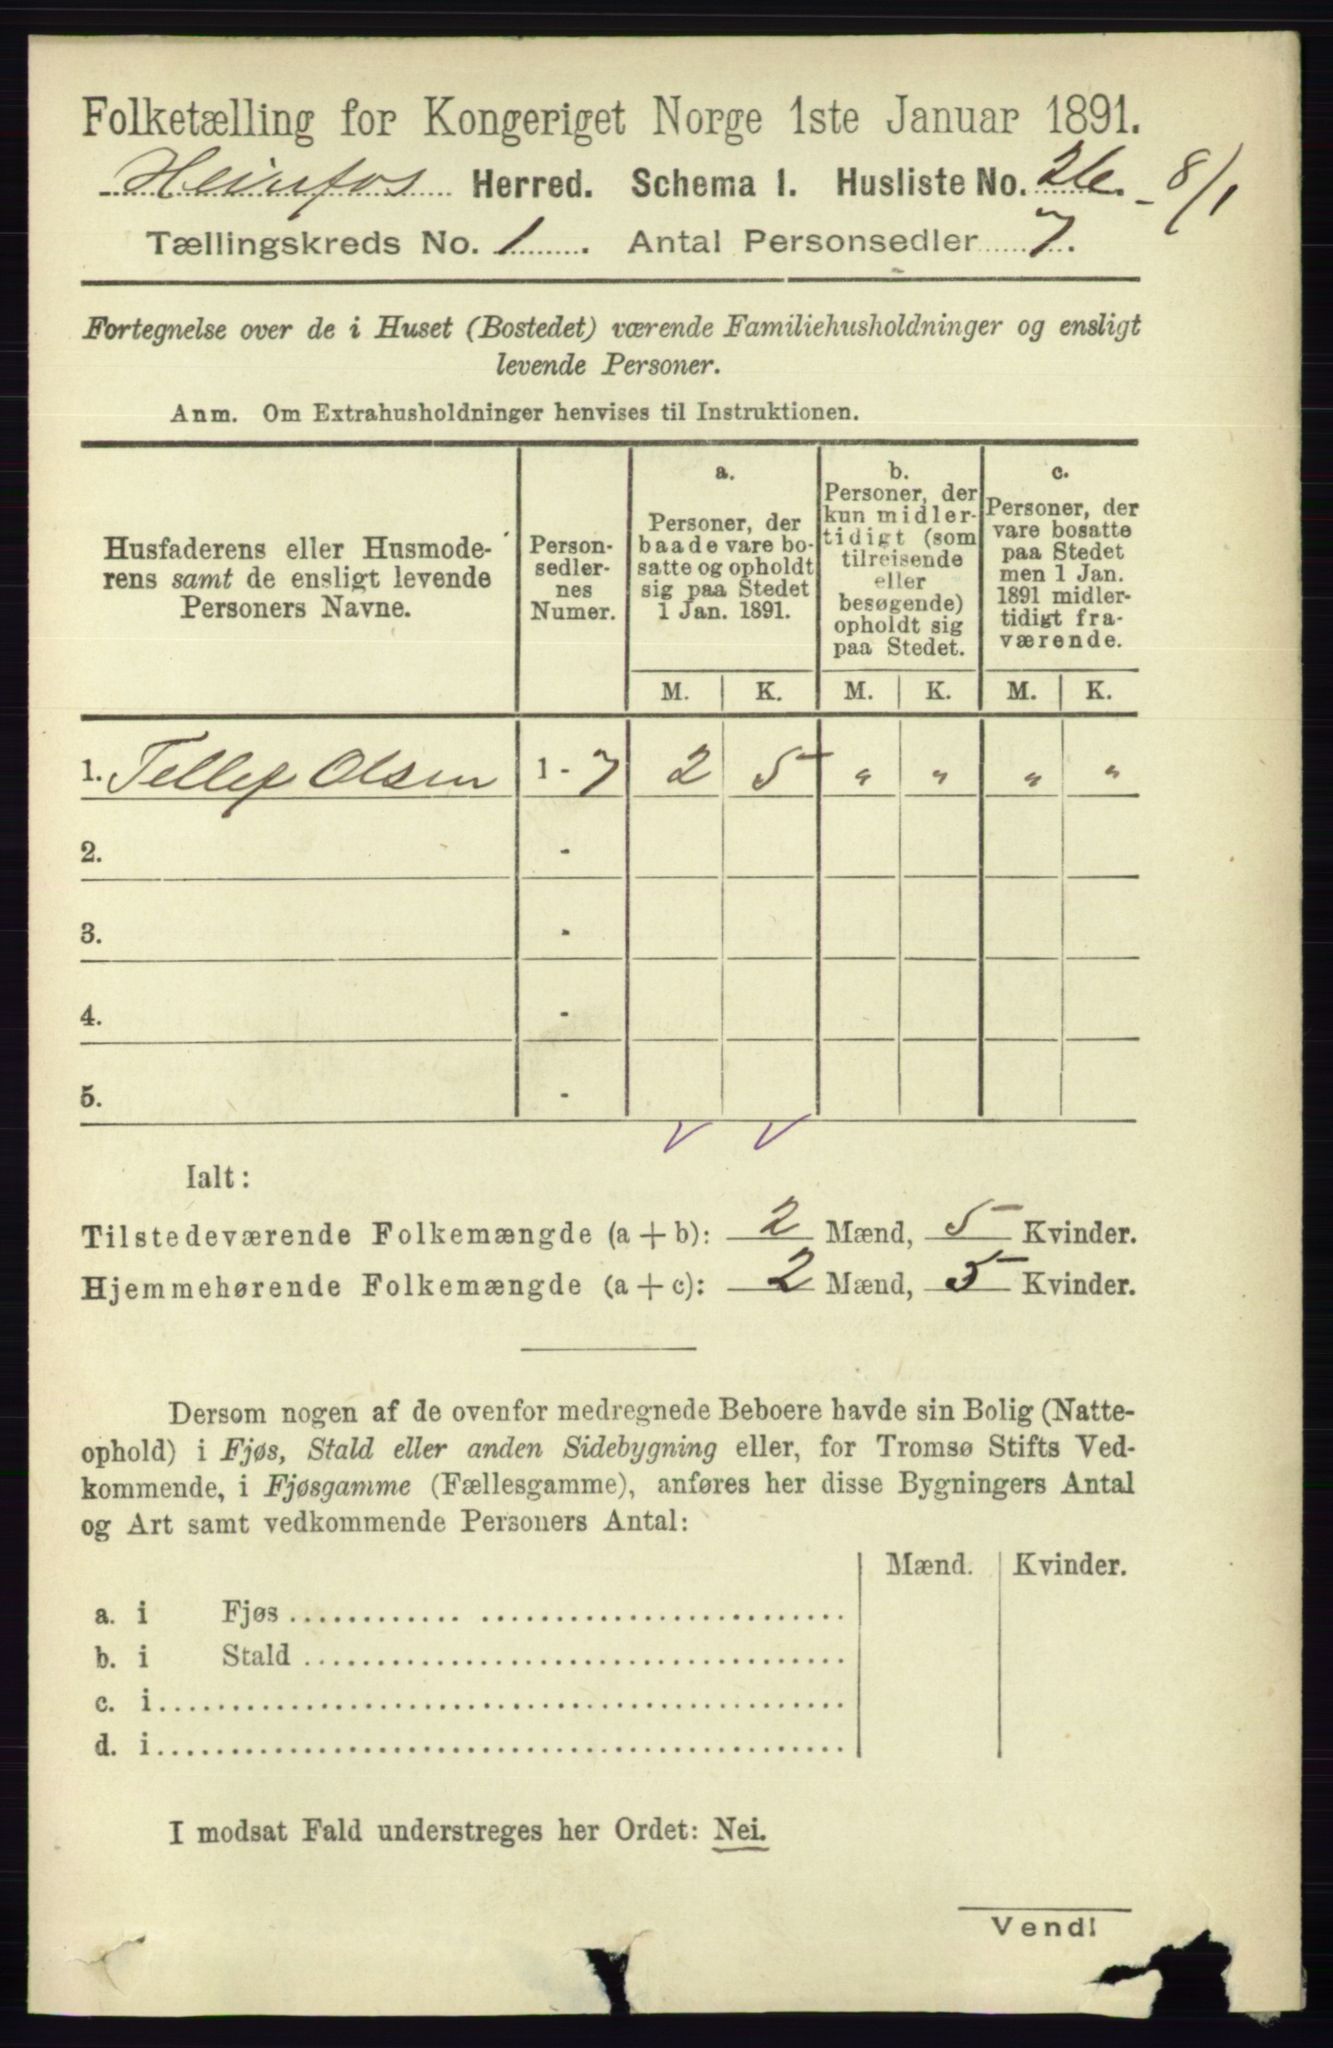 Folketælling for Kongeriget Norge 1ste Januar 1891.
Heinfos Herred. Schema 1. Husliste No. 26. - 8/1
Tællingskreds No. 1. Antal Personsedler 7.
Fortegnelse over de i Huset (Bostedet) værende Familiehusholdninger og ensligt
levende Personer.
Anm. Om Extrahusholdninger henvises til Instruktionen.
Husfaderens eller Husmode-
rens samt de ensligt levende
Personers Navne.
Person-
sedler-
nes
Numer.
a.
Personer, der
baade vare bo-
satte og opholdt
sig paa Stedet
1 Jan. 1891.
b.
Personer, der
kun midler-
tidigt (som
tilreisende
eller
besøgende)
opholdt sig
paa Stedet.
c.
Personer, der
vare bosatte
paa Stedet
men 1 Jan.
1891 midler-
tidigt fra-
værende.
M. K. M. K. M. K.
1. Tellef Olsen 1 - 7 2 5 " " " "
2. -
3. -
4. -
5. -
Ialt:
Tilstedeværende Folkemængde (a + b): 2 Mænd, 5 Kvinder.
Hjemmehørende Folkemængde (a + c): 2 Mænd, 5 Kvinder.
Dersom nogen af de ovenfor medregnede Beboere havde sin Bolig (Natte-
ophold) i Fjøs, Stald eller anden Sidebygning eller, for Tromsø Stifts Ved-
kommende, i Fjøsgamme (Fællesgamme), anføres her disse Bygningers Antal
og Art samt vedkommende Personers Antal:
Mænd. Kvinder.
a. i Fjøs
b. i Stald
c. i
d. i
I modsat Fald understreges her Ordet: Nei.
Vend!